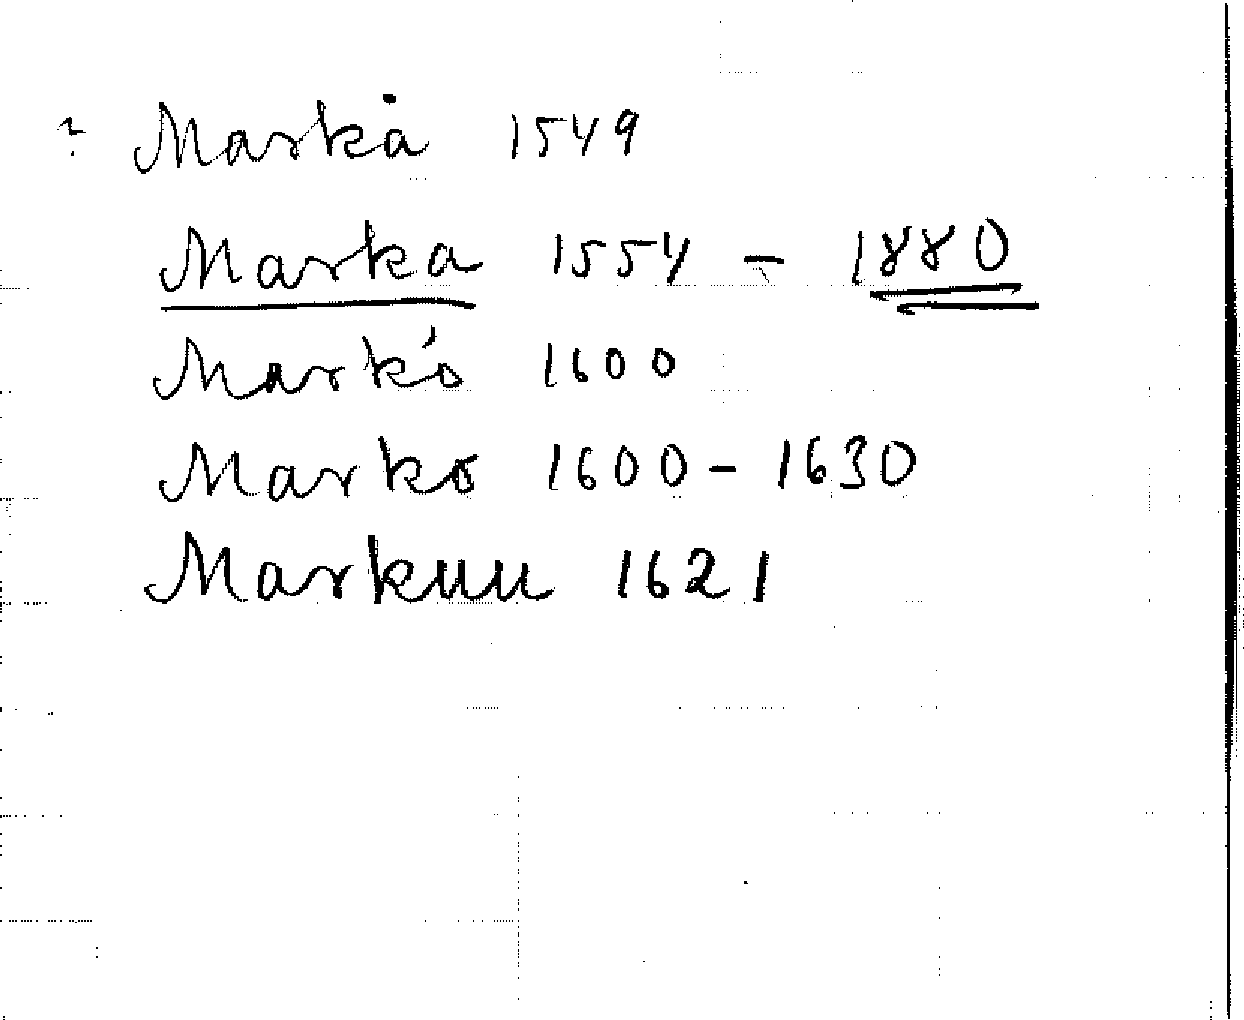 ? Marka̍ 1549
Marka 1554 - 1880
Markó 1600
Marko 1600 - 1630
Markuu 1621